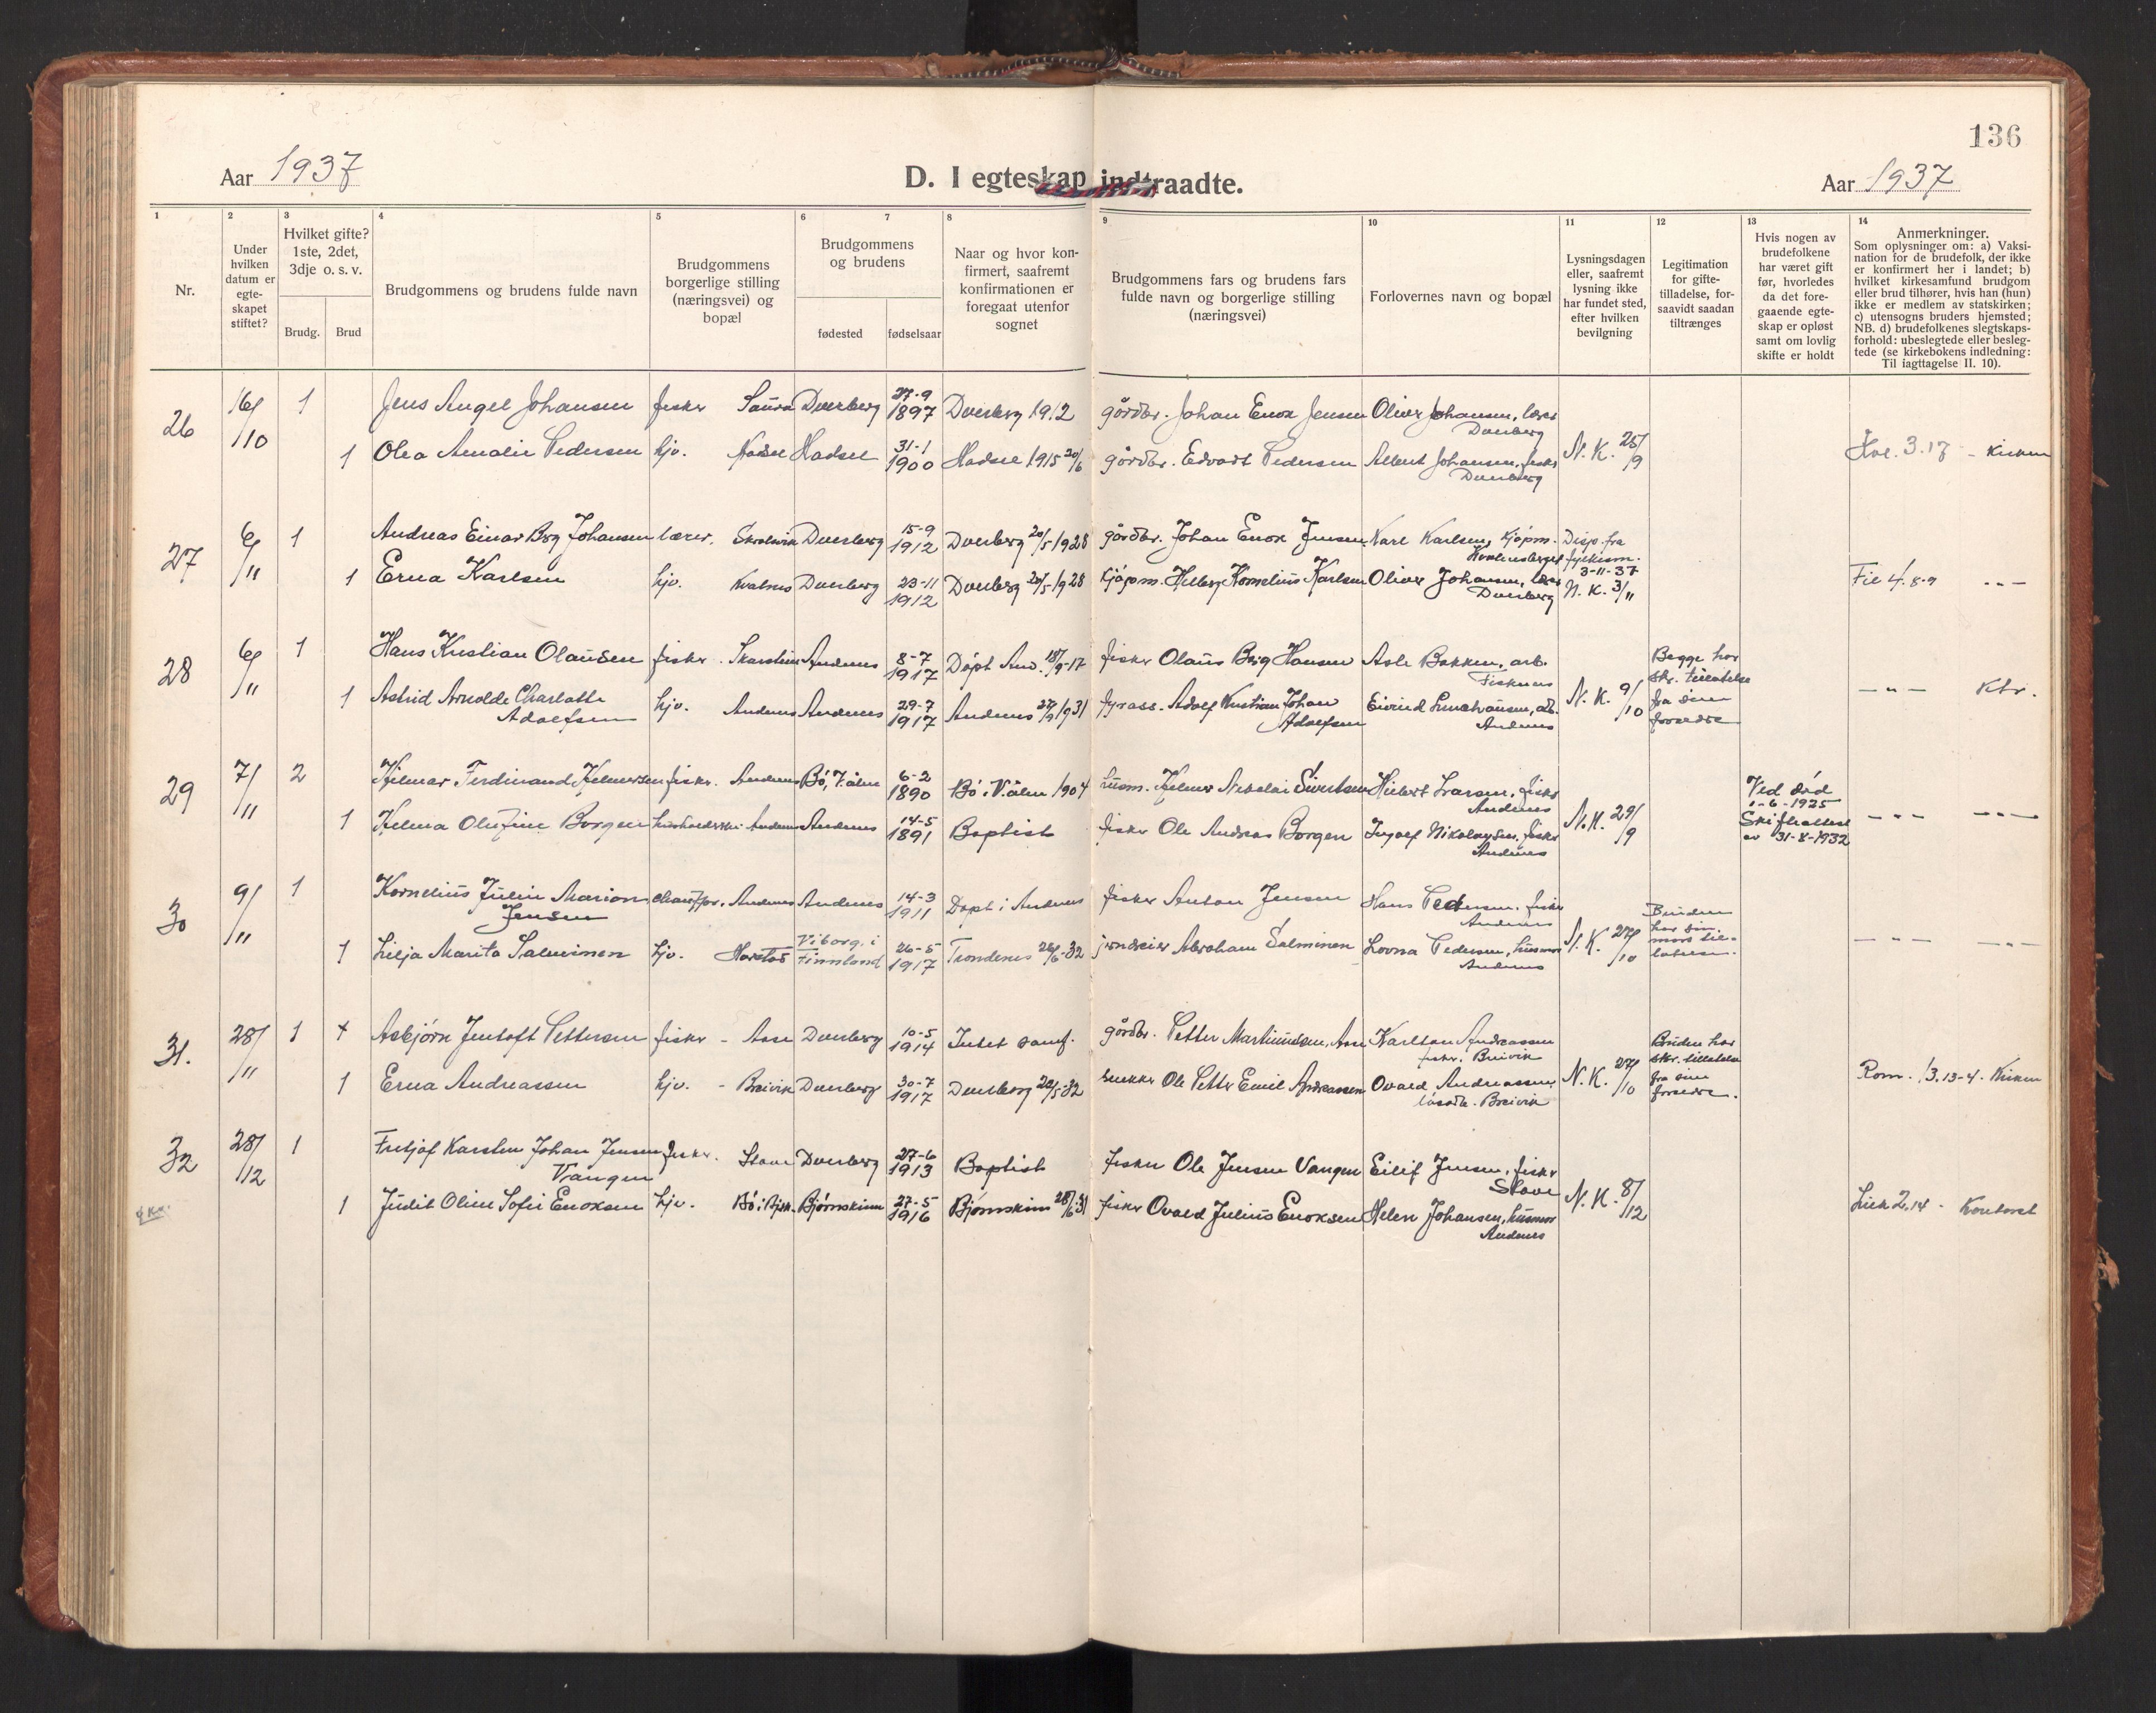 136
Aar 1937
D. I egteskap indtraadte.
Aar 1937
1 2 3 4 5 6 7 8 9 10 11 12 13 14
Nr.
Under hvilken datum er egte- skapet stiftet?
Hvilket gifte? 1ste, 2det, 3dje o. s. v.
Brudg. Brud
Brudgommens og brudens fulde navn
Brudgommens borgerlige stilling (næringsvei) og bopæl
Brudgommens og brudens
fødested fødselsaar
Naar og hvor kon- firmert, saafremt konfirmationen er foregaat utenfor sognet
Brudgommens fars og brudens fars fulde navn og borgerlige stilling (næringsvei)
Forlovernes navn og bopæl
Lysningsdagen eller, saafremt lysning ikke har fundet sted, efter hvilken bevilgning
Legitimation for gifte- tilladelse, for- saavidt saadan tiltrænges
Hvis nogen av brudefolkene har været gift før, hvorledes da det fore- gaaende egte- skap er opløst samt om lovlig skifte er holdt
Anmerkninger.
Som oplysninger om: a) Vaksi-
nation for de brudefolk, der ikke
er konfirmert her i landet; b)
hvilket kirkesamfund brudgom
eller brud tilhører, hvis han (hun)
ikke er medlem av statskirken;
c) utensogns bruders hjemsted;
NB. d) brudefolkenes slegtskaps-
forhold: ubeslegtede eller besleg-
tede (se kirkebokens indledning:
Til iagttagelse II. 10).
26 16/10 1 Jens Angel Johansen fisker Saura Dverberg 27-9 1897 Dverberg 1912 gårdbr. Johan Enok Jensen Oliver Johansen, lærer Dverberg
1 Olea Amalie Pedersen hjv. Hadsel Hadsel 31-1 1900 Hadsel 1915 20/6 gårdbr. Edvart Pedersen Albert Johansen, fisker Dverberg N. K. 25/9 3.17 - Kirken
27 6/11 1 Andreas Einar Berg Johansen lærer, Dverberg 15-9 1912 Dverberg 20/5 1928 gårdbr. Johan Enok Jensen Karl Karlsen, kjøpm. Disp. fra fylkesm. 3-11-37
1 Erna Karlsen hjv. Kvalnes Dverberg 23-11 1912 Dverberg 20/5 1928 kjøpm. Helberg Kornelius Karlsen Oliver Johansen, lærer Dverberg N. K. 3/11 Fil 4. 8-9 - " -
28 6/11 1 Hans Kristian Olausen fisker. Skarstein Andenes 8-7 1917 Døpt And. 18/9-17 fisker Olaus Berg Hansen Asle Bakken, arb. Fiskenes Begge har skr. tillatelse fra sine foreldre
1 Astrid Arnolde Charlotte Adolfsen hjv. Andenes Andenes 29-7 1917 Andenes 27/9 1931 fyrass. Adolf Kristian Johan Adolfsen Eivind arb. Andenes N. K. 9/10 - " - Ktr.
29 7/11 2 Hjelmar Ferdinand Hjelmersen fisker. Andenes Bø, V.ålen 6-2 1890 Bø i V.ålen 1904 husm. Hjelmer Nikolai Sivertsen Hilbert Larsen, fisker Andenes Ved død 1-6-1925 Skifteattest av 31-8-1932
1 Andenes Andenes 14-5 1891 Baptist fisker Ole Andreas Borgen Ingolf Nikolaysen, fisker Andenes N. K. 29/9 - " - - " -
30 9/11 1 Kornelius Julin Marion Jensen chauffør. Andenes Andenes 14-3 1911 Døpt i Andenes fisker Anton Jensen Hans Pedersen, fisker Andenes
1 Lilja Marita Salminen hjv. Harstad Viborg i Finnland 26-5 1917 Trondenes 26/6-32 Abraham Salminen Lovna Pedersen, husmor Andenes N. K. 27/10 Bruden har sin mors tillatelse. - " - - " -
31. 28/11 1 + Asbjørn Jentoft Pettersen fisker - Åse Dverberg 10-5 1914 Intet samf. gårdbr. Petter Martinussen, Åse Karlton Andreassen fisker. Breivik
1 Erna Andreassen hjv. - Breivik Dverberg 30-7 1917 Dverberg 22/5-32 snekker Ole Petter Emil Andreassen Ovald Andreassen, Breivik N. K. 27/10 Bruden har skr. tillatelse fra sine foreldre. Rom. 13. 13-4. Kirken
32 28/12 1 Fritjof Karsten Johan Jensen Vangen fisker. Stave Dverberg 27-6 1913 Baptist fisker Ole Jensen Vangen Eilif Jensen, fisker Stave
1 Judit Oline Sofie Enoksen hjv. Bø i Bjsk. Bjørnskinn 27-5 1916 Bjørnskinn 28/6 31 fisker Ovald Julius Enoksen Helen Johansen, husmor Andenes N. K. 8/12 Luk 2, 14 - Kontoret